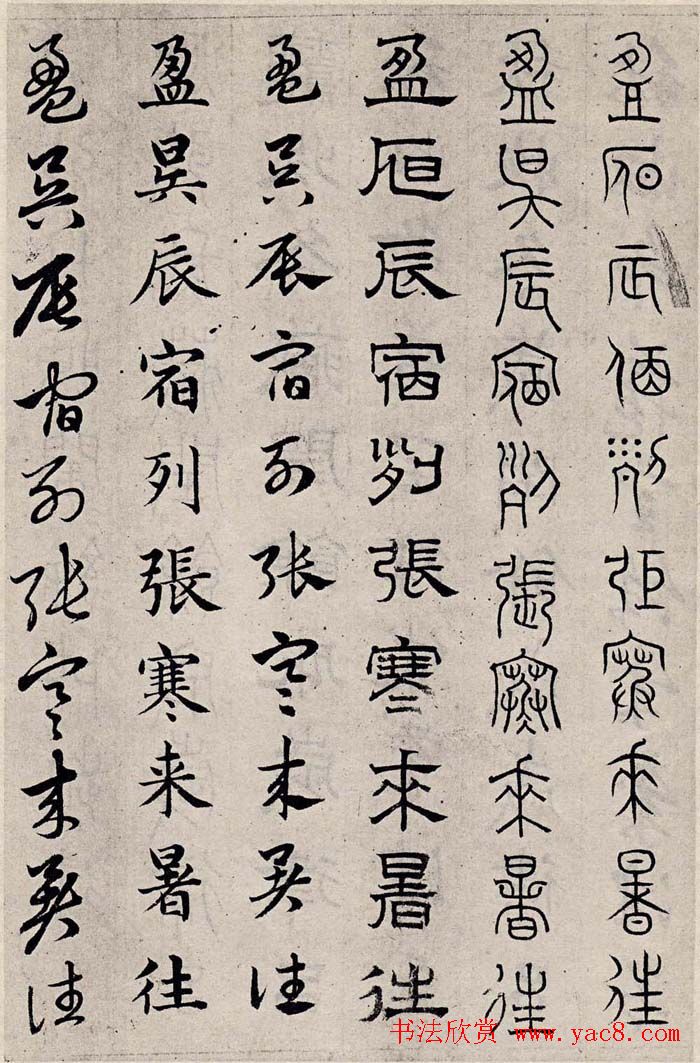 盈昃辰宿列張寒來暑往
盈昃辰宿列張寒來暑往
盈昃辰宿列張寒來暑往
盈昃辰宿列张寒来暑往
盈昃辰宿列張寒来暑往
盈昃辰宿列张寒来暑往
书法欣赏 www.yac8.com